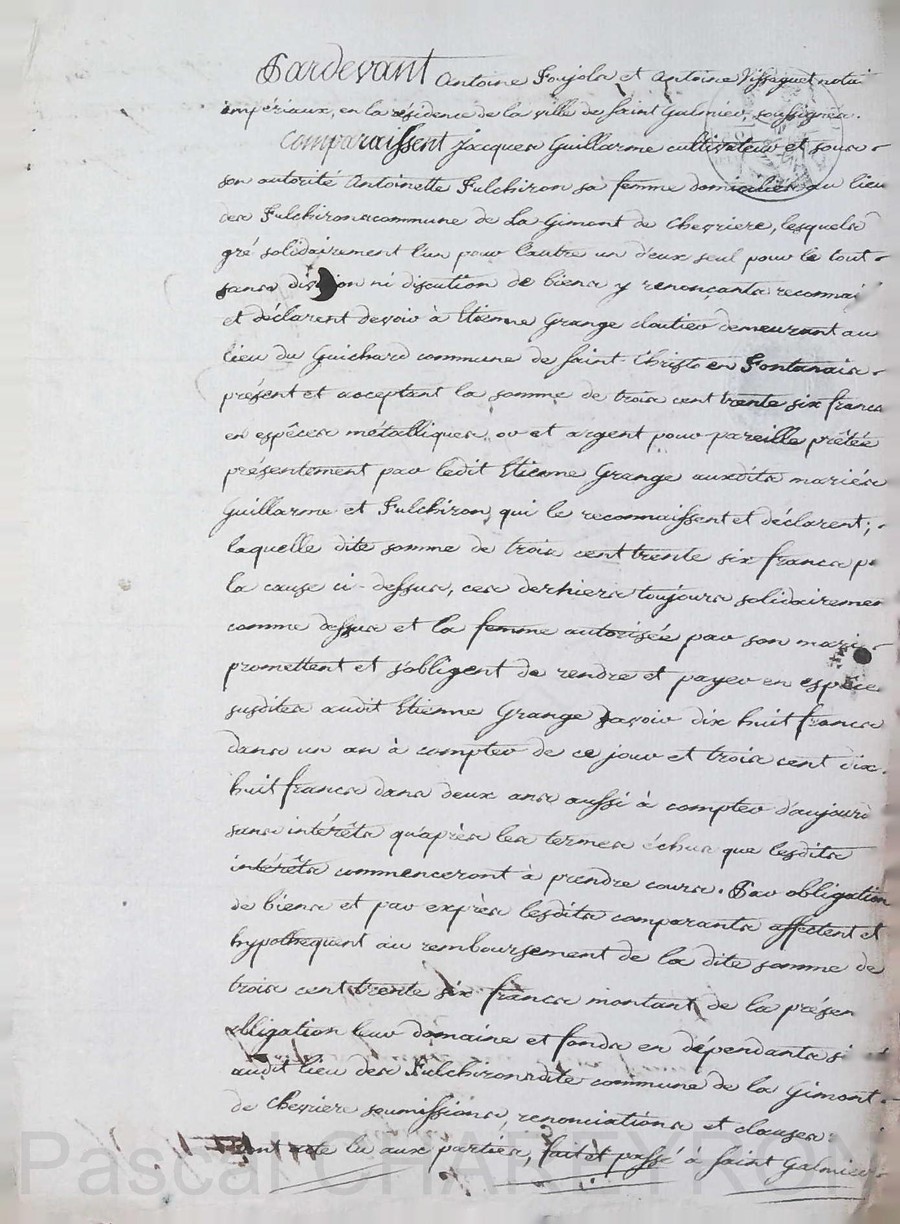 Pardevant Antoine Foujols et Antoine Vissaguet notai
impériaux, en la résidence de la ville de Saint Galmier, soussignés.
Comparaissent Jacques Guillarme cultivateur et sous
son autorité Antoinette Fulchiron sa femme domiciliés au lieu
des Fulchirons commune de La Gimont de Chevriere, lesquels
gré solidairement l'un pour l'autre un d'eux seul pour le tout
sans division ni discution de biens y renonçants reconnai
et déclarent devoir à Etienne Grange cloutier demeurant au
lieu du Guichard commune de Saint Christo en Fontanais
présent et acceptant la somme de trois cent trente six francs
en espèces métalliques, or et argent pour pareille prêtée
présentement par ledit Etienne Grange auxdits mariés
Guillarme et Fulchiron, qui le reconnaissent et déclarent;
laquelle dite somme de trois cent trente six francs p
la cause ci-dessus, ces derniers toujours solidairemen
comme dessus et la femme autorisée par son mari
promettent et s'obligent de rendre et payer en espèce
susdites audit Etienne Grange savoir dix huit francs
dans un an à compter de ce jour et trois cent dix
huit francs dans deux ans aussi à compter d'aujourd
sans intérêts qu'après les termes échus que lesdits
intérêts commenceront à prendre cours. Par obligation
de biens et par exprès lesdits comparants affectent et
hypothequent au remboursement de la dite somme de
trois cent trente six francs montant de la présen
obligation leur domaine et fonds en dépendants si
audit lieu des Fulchirons dite commune de la Gimont
de Chevriere soumissions, renonciations et clauses
Dont acte lu aux parties, fait et passé à Saint Galmier
Pascal CHAREYRON